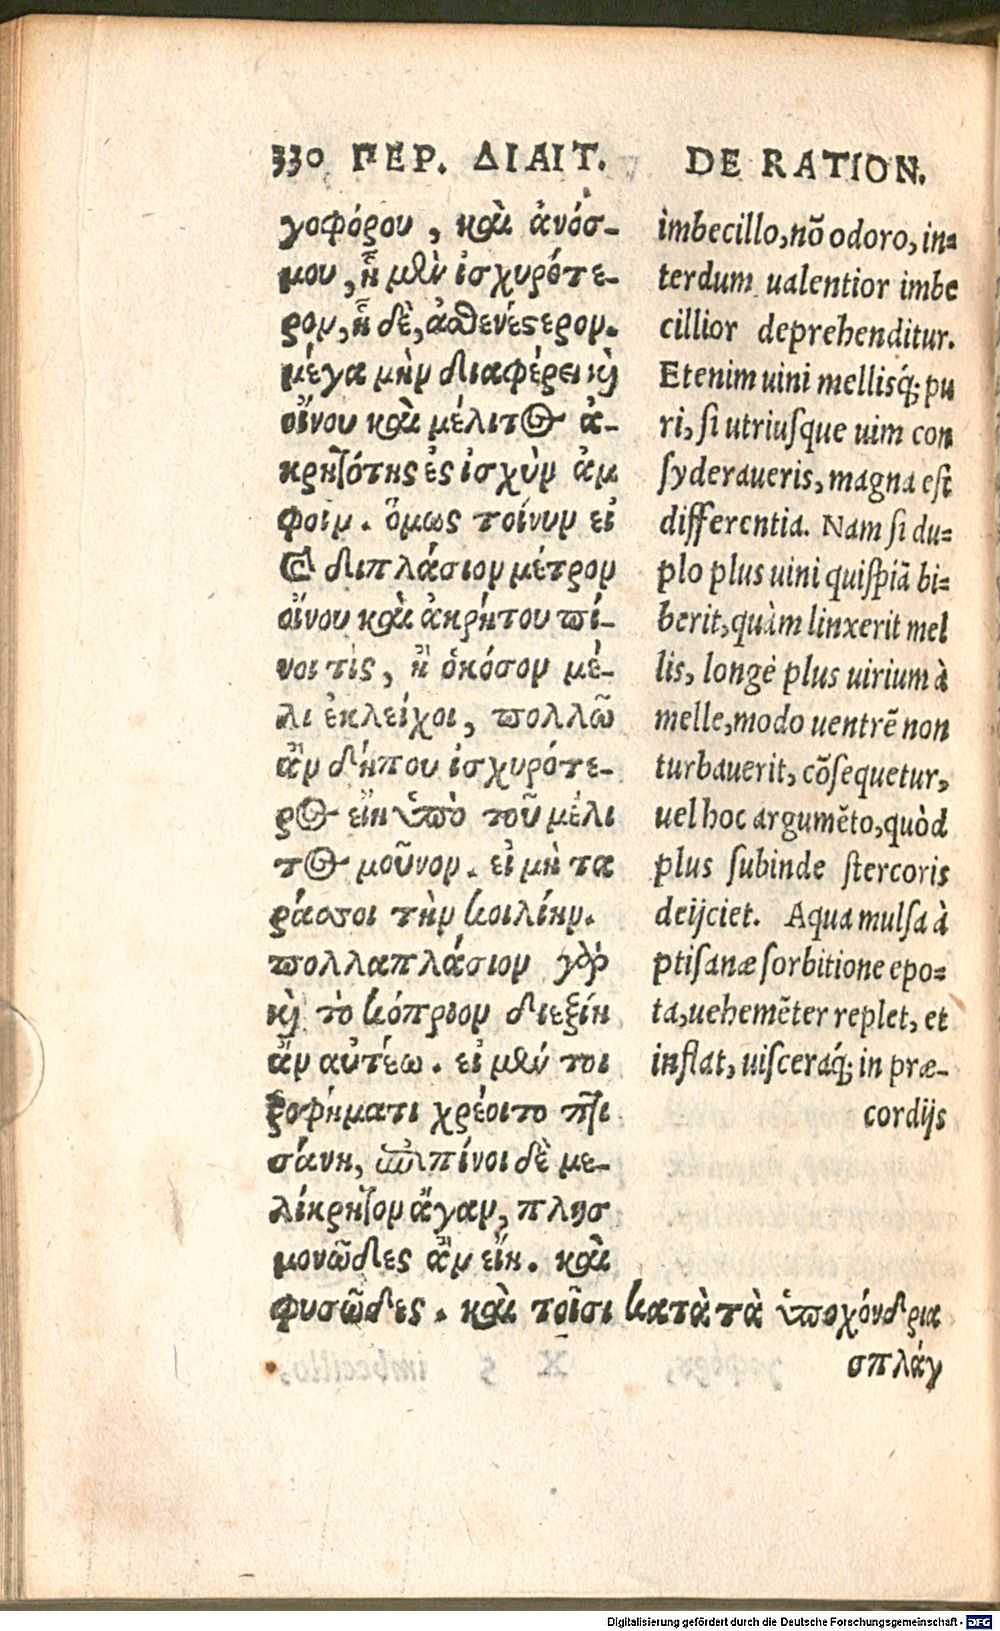 330 ΠΕΡ. ΔΙΑΙΤ.
γοφόρου, καὶ ἀνόσ-
μου, ᾖ μὲν ἰσχυρότε-
ρον, ᾖ δὲ, ἀσθενέστερον.
μέγα μὴν διαφέρει κὶ
οἴνου καὶ μέλιτος ἀ-
κρητότης ἐς ἰσχὺν ἀμ
φοῖν. ὅμως τοίνυν εἰ
καὶ διπλάσιον μέτρον
οἴνου καὶ ἀκρήτου πί-
νοι τὶς, ἢ ὁκόσον μέ-
λι ἐκλείχοι, πολλῶ
ἂν δήπου ἰσχυρότε-
ρος εἴη ὑπὸ τοῦ μέλι
τος μοῦνον. εἰ μὴ τα
ράσσοι τὴν κοιλίην.
πολλαπλάσιον γὰρ
κὶ τὸ κόπριον διεξίη
ἂν αὐτέω. εἰ μὲν τοι
ῥοφήματι χρέοιτο πτι
σάνη, ἐπιπίνοι δὲ με-
λίκρητον ἄγαν, πλησ
μονῶδες ἂν εἴη. καὶ
φυσῶδες. καὶ τοῖσι κατὰ τὰ ὑποχόνδρια
σπλάγ
DE RATION.
imbecillo, nõ odoro, in=
terdum ualentior imbe
cillior deprehenditur.
Etenim uini mellisq́; pu
ri, si utriusque uim con
syderaueris, magna est
differentia. Nam si du=
plo plus uini quispiã bi=
berit, quàm linxerit mel
lis, longè plus uirium à
melle, modo uentrẽ non
turbauerit, cõsequetur,
uel hoc argumẽto, quòd
plus subinde stercoris
deijciet. Aqua mulsa à
ptisanæ sorbitione epo=
ta, uehemẽter replet, et
inflat, uisceraq́; in præ-
cordijs
Digitalisierung gefördert durch die Deutsche Forschungsgemeinschaft - DFG